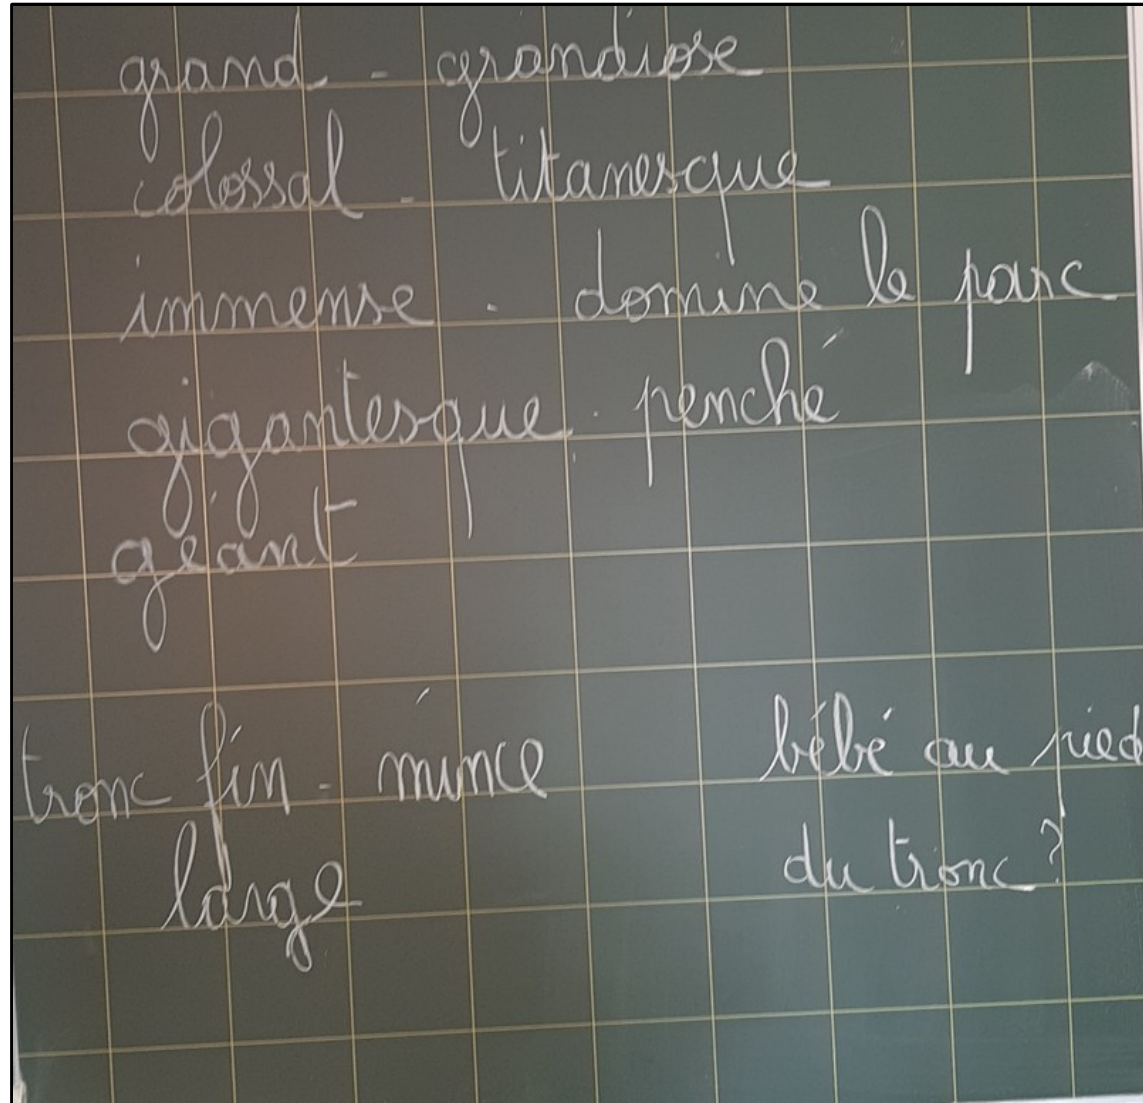 grand - grandiose
colossal - titanesque
immense - domine le parc
gigantesque - penché
géant
tronc fin - mince bébé au pied
large du tronc ?